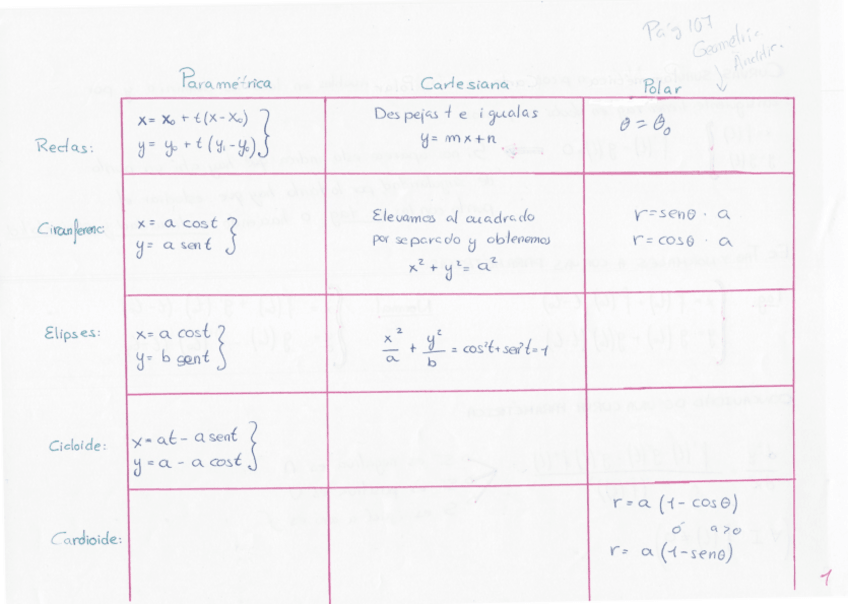 Pág 107
Geometrí.
Analític.
Paramétrica Cartesiana Polar
Rectas:
x = x₀ + t(x - x₀)
y = y₀ + t(y₁ - y₀)
Despejas t e igualas
y = mx + n
θ = θ₀
Circunferenc:
x = a cost
y = a sent
Elevamos al cuadrado
por separado y obtenemos
x² + y² = a²
r = senθ · a
r = cosθ · a
Elipses:
x = a cost
y = b sent
x²/a + y²/b = cos²t + sen²t = 1
Cicloide:
x = at - a sent
y = a - a cost
Cardioide:
r = a (1 - cosθ)
ó a>0
r = a (1 - senθ)
1